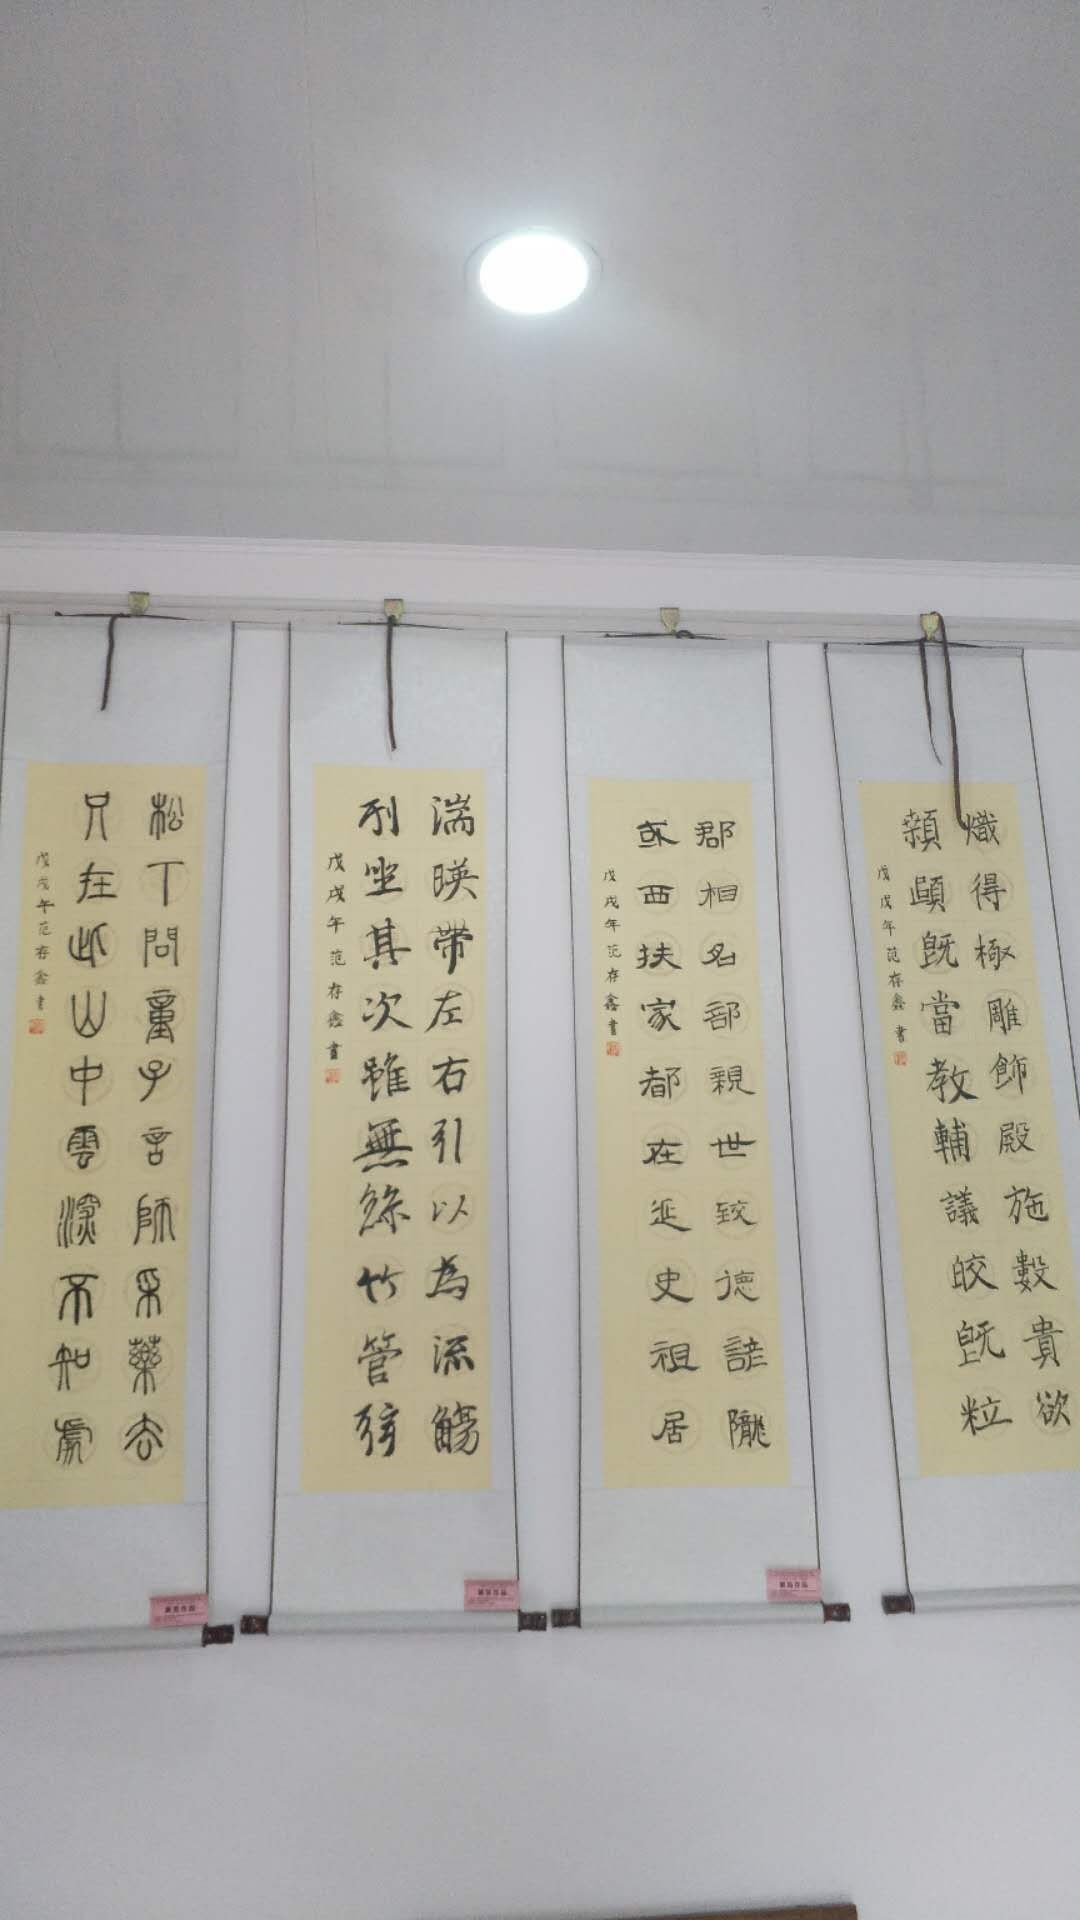 松下問童子言師采藥去
只在此山中雲深不知處
戊戌年范存鑫書
湍暎帶左右引以為流觴
列坐其次雖無絲竹管弦
戊戌年范存鑫書
郡相名部親世致德諺隴
或西扶家都在延史祖居
戊戌年范存鑫書
熾得極雕飾殿施數貴欲
顙頤既當教輔議皎既粒
戊戌年范存鑫書